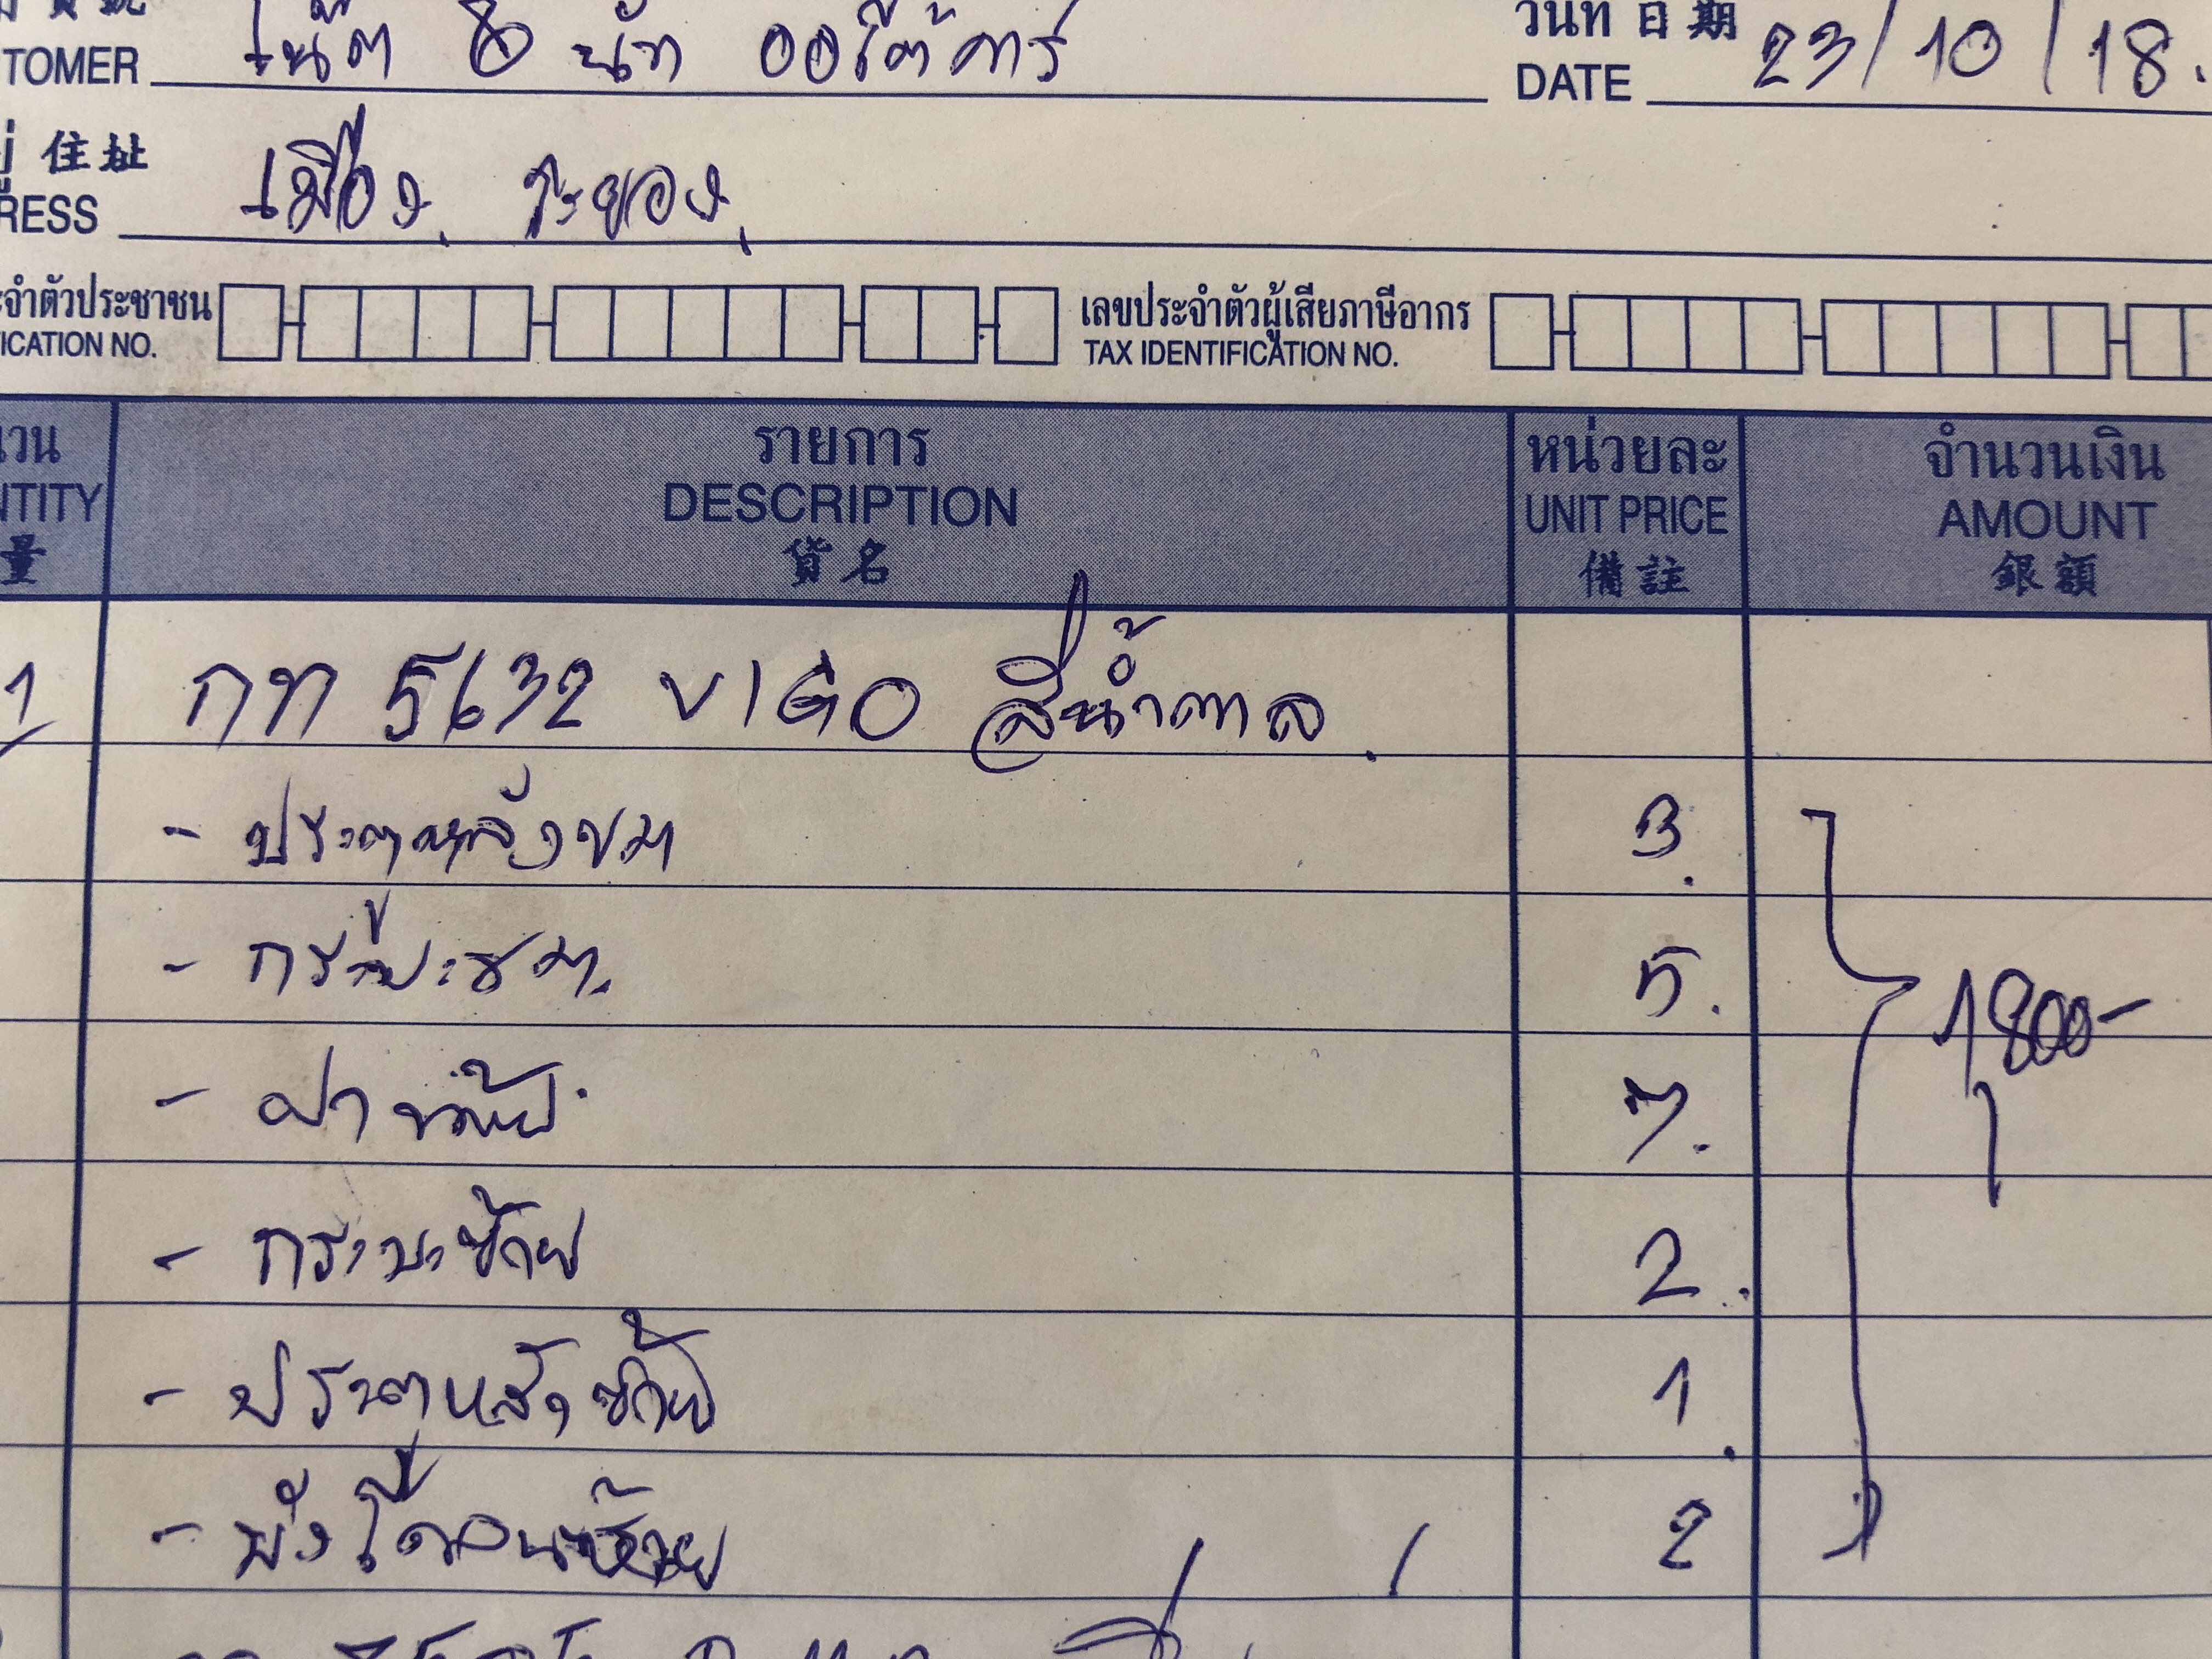 เน๊ต & นัท ออโต้คาร์
TOMER
วันที่ 日期 23/10/18.
DATE
ยู่ 住址 เมือง, ระยอง,
RESS
ะจำตัวประชาชน
ICATION NO.
เลขประจำตัวผู้เสียภาษีอากร
TAX IDENTIFICATION NO.
นวน รายการ หน่วยละ จำนวนเงิน
NTITY DESCRIPTION UNIT PRICE AMOUNT
量 貨名 備註 銀額
1 กท 5632 VIGO สีน้ำตาล.
- ประตูหลังขวา 3.
- กระบะขวา. 5.
- ฝาท้าย 7.
1800-
- กระบะซ้าย 2.
- ประตูหลังซ้าย 1.
- บังโคลนซ้าย 2